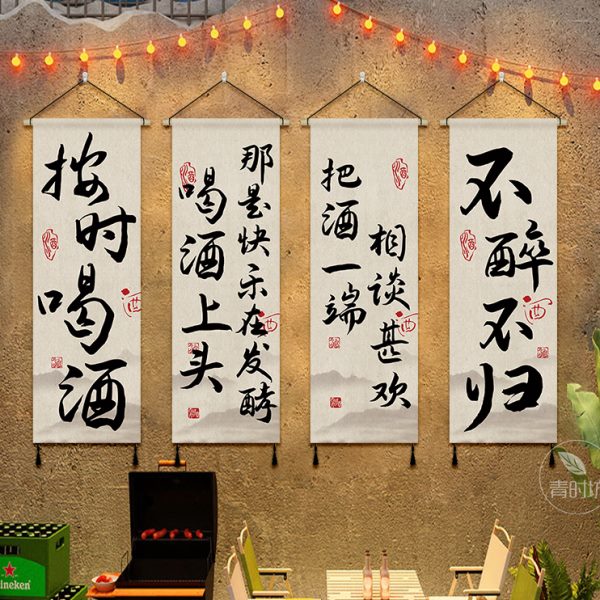 按时喝酒
喝酒上头
那是快乐在发酵
把酒一端
相谈甚欢
不醉不归
酒
酒
酒
青时坊
Heineken